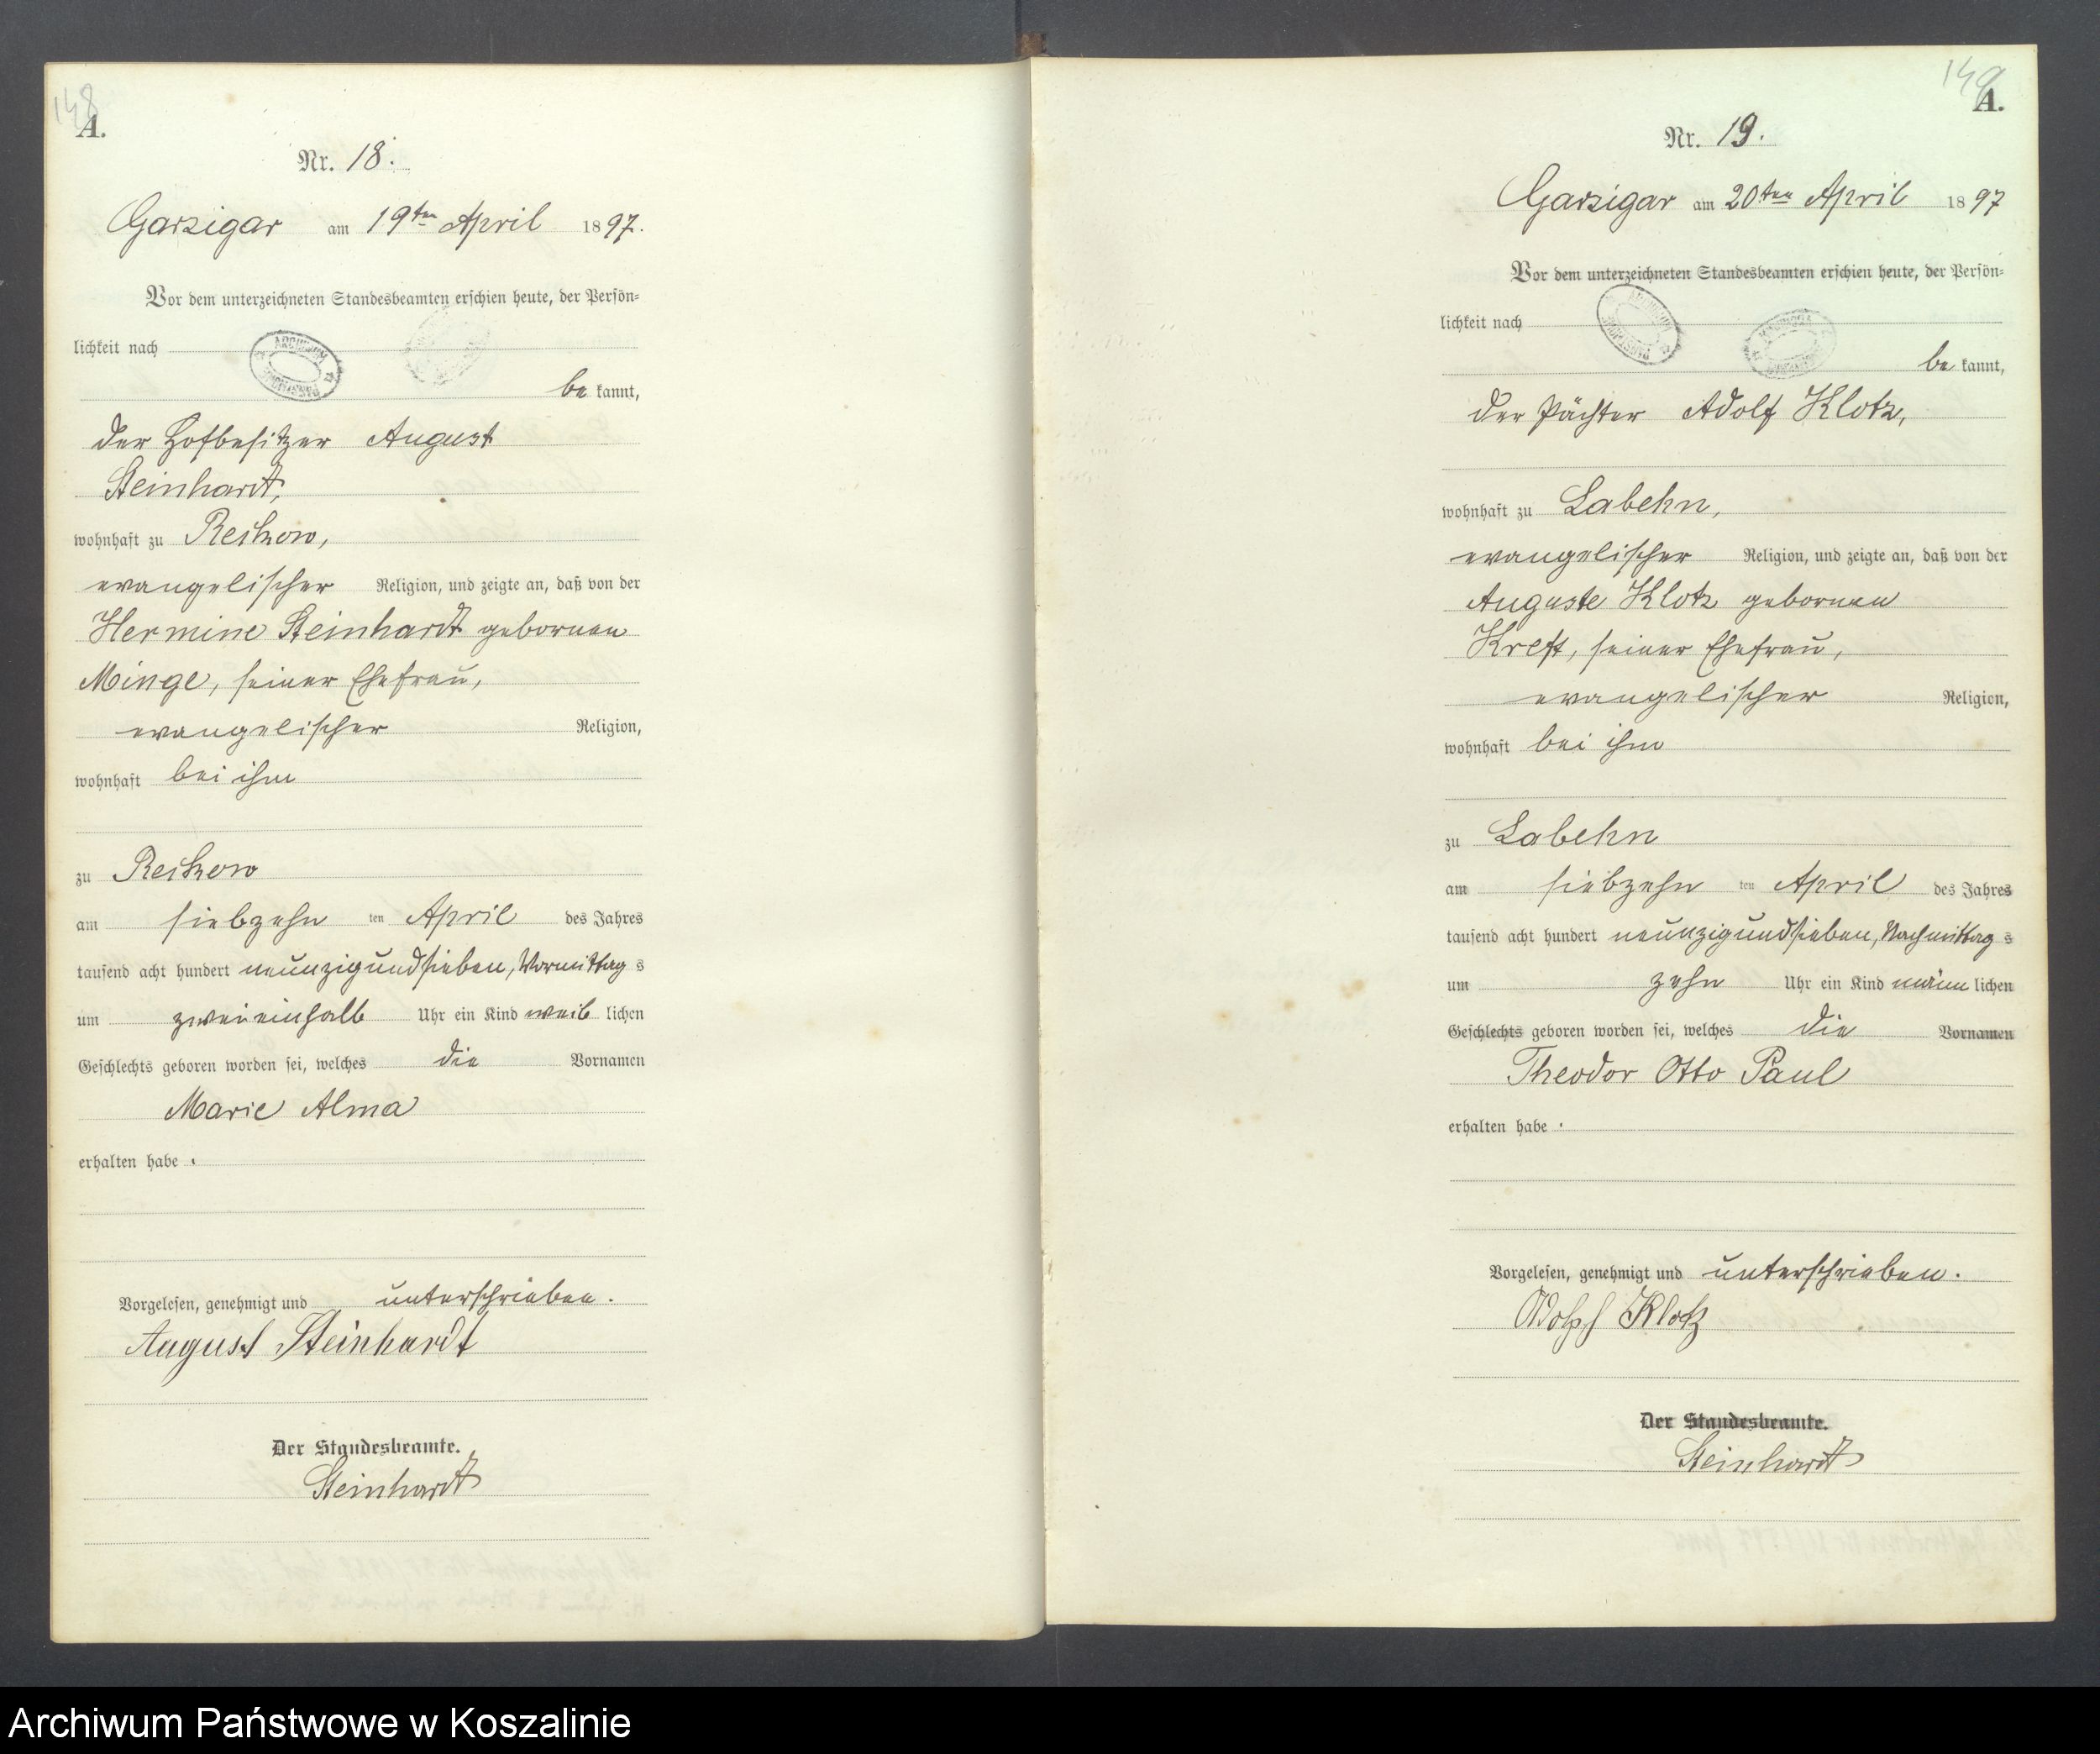 148
A.
Nr. 18.
Garzigar am 19ten April 1897.
Vor dem unterzeichneten Standesbeamten erschien heute, der Persön=
lichkeit nach
ARCHIWUM PAŃSTWOWE
be kannt,
der Hofbesitzer August
Steinhardt,
wohnhaft zu Reskow,
evangelischer Religion, und zeigte an, daß von der
Hermine Steinhardt gebornen
Minge, seiner Ehefrau,
evangelischer Religion,
wohnhaft bei ihm
zu Reskow
am siebzehn ten April des Jahres
tausend acht hundert neunzigundsieben, Vormittag s
um zweieinhalb Uhr ein Kind weib lichen
Geschlechts geboren worden sei, welches die Vornamen
Marie Alma
erhalten habe .
Vorgelesen, genehmigt und unterschrieben.
August Steinhardt
Der Standesbeamte.
Steinhardt
149
A.
Nr. 19.
Garzigar am 20ten April 1897
Vor dem unterzeichneten Standesbeamten erschien heute, der Persön=
lichkeit nach
ARCHIWUM PAŃSTWOWE
be kannt,
der Pächter Adolf Klotz,
wohnhaft zu Labehn,
evangelischer Religion, und zeigte an, daß von der
Auguste Klotz gebornen
Kreft, seiner Ehefrau,
evangelischer Religion,
wohnhaft bei ihm
zu Labehn
am siebzehn ten April des Jahres
tausend acht hundert neunzigundsieben, Nachmittag s
um zehn Uhr ein Kind männ lichen
Geschlechts geboren worden sei, welches die Vornamen
Theodor Otto Paul
erhalten habe .
Vorgelesen, genehmigt und unterschrieben.
Adolph Klotz
Der Standesbeamte.
Steinhardt
Archiwum Państwowe w Koszalinie